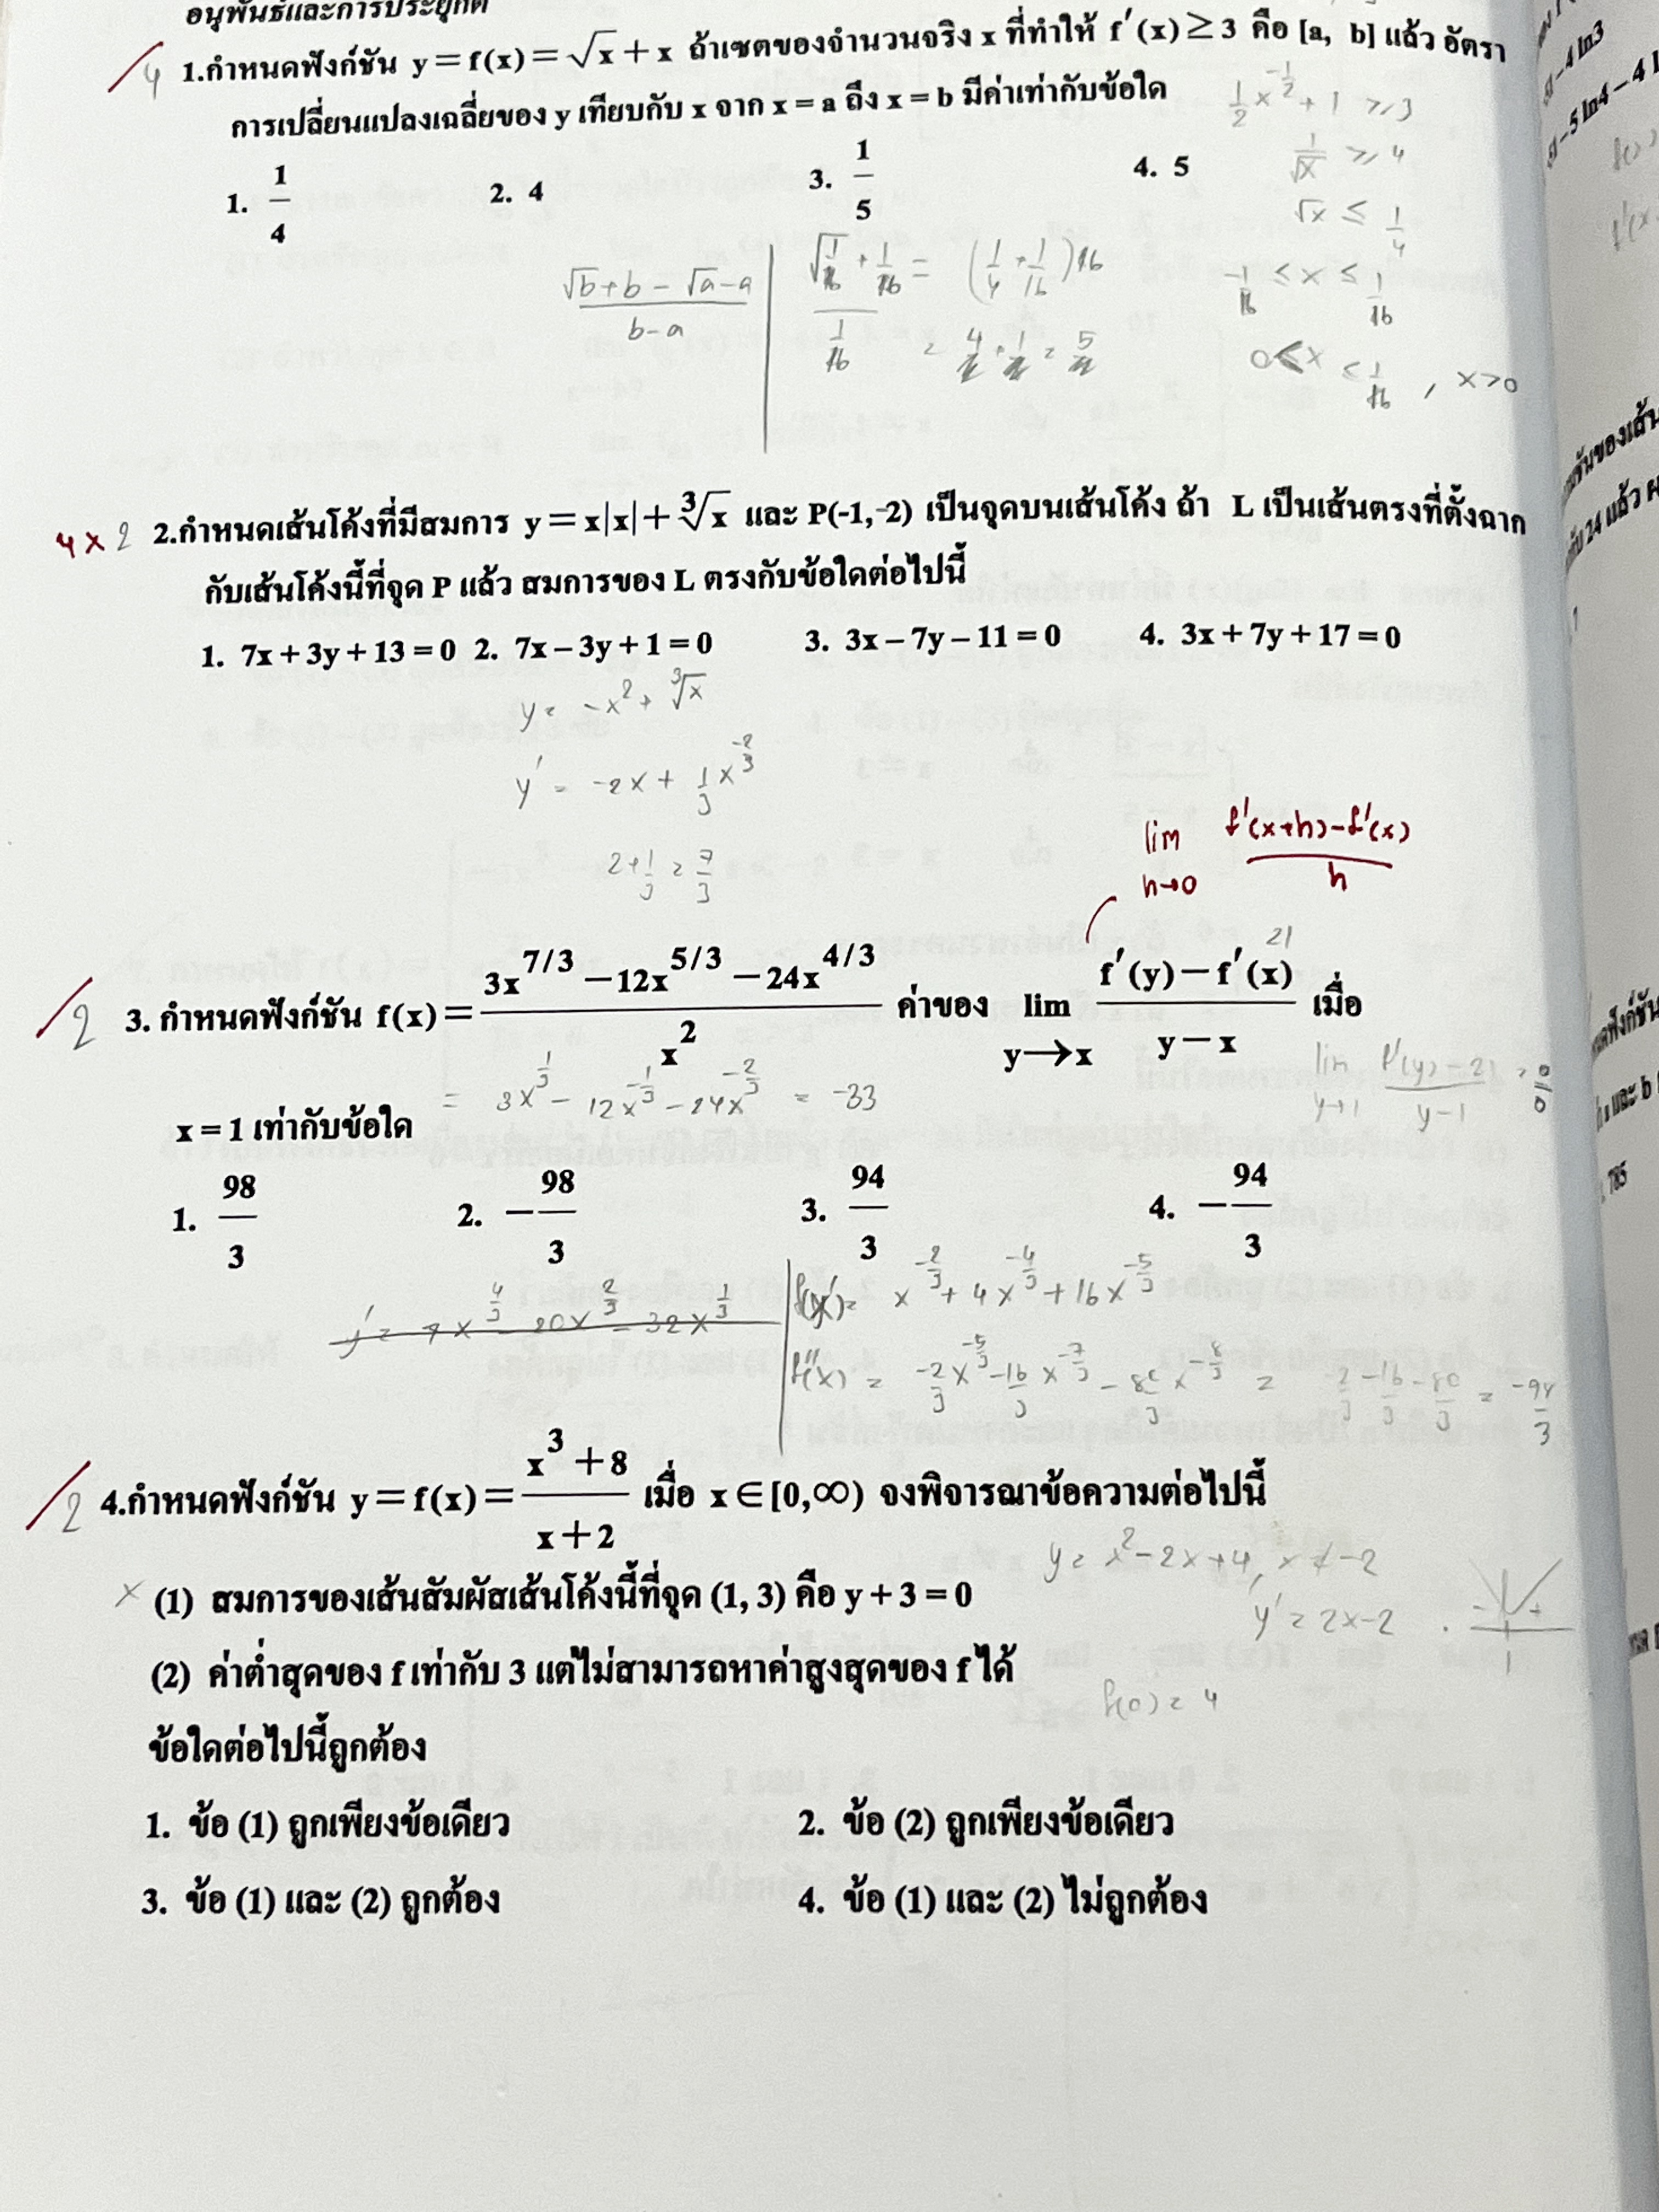 อนุพันธ์และการประยุกต์
4 1.กำหนดฟังก์ชัน y = f(x) = √x + x ถ้าเซตของจำนวนจริง x ที่ทำให้ f′(x) ≥ 3 คือ [a, b] แล้ว อัตรา
การเปลี่ยนแปลงเฉลี่ยของ y เทียบกับ x จาก x = a ถึง x = b มีค่าเท่ากับข้อใด
1/2 x^(-1/2) + 1 ≥ 3
1. 1/4 2. 4 3. 1/5 4. 5
1/√x ≥ 4
√x ≤ 1/4
(√b + b - √a - a)/(b - a)
(√(1/16) + 1/16)/(1/16) = (1/4 + 1/16)16
-1/16 ≤ x ≤ 1/16
0 < x ≤ 1/16 , x > 0
4 x 2 2.กำหนดเส้นโค้งที่มีสมการ y = x|x| + ∛x และ P(-1,-2) เป็นจุดบนเส้นโค้ง ถ้า L เป็นเส้นตรงที่ตั้งฉาก
กับเส้นโค้งนี้ที่จุด P แล้ว สมการของ L ตรงกับข้อใดต่อไปนี้
1. 7x + 3y + 13 = 0 2. 7x – 3y + 1 = 0 3. 3x – 7y – 11 = 0 4. 3x + 7y + 17 = 0
y = -x² + ∛x
y' = -2x + 1/3 x^(-2/3)
2 + 1/3 = 7/3
lim h→0 (f'(x+h) - f'(x))/h
21
2 3. กำหนดฟังก์ชัน f(x) = (3x^(7/3) − 12x^(5/3) − 24x^(4/3))/x² ค่าของ lim y→x (f′(y) − f′(x))/(y − x) เมื่อ
= 3x^(1/3) - 12x^(-1/3) - 24x^(-2/3) = -33
lim y→1 (f'(y) - 21)/(y - 1) = 0/0
x = 1 เท่ากับข้อใด
1. 98/3 2. −98/3 3. 94/3 4. −94/3
y' = 7x^(4/3) - 20x^(2/3) - 32x^(1/3)
x^(-2/3) + 4x^(-4/3) + 16x^(-5/3)
f''(x) = -2/3 x^(-5/3) - 16/3 x^(-7/3) - 80/3 x^(-8/3) = -2/3 - 16/3 - 80/3 = -98/3
2 4.กำหนดฟังก์ชัน y = f(x) = (x³ + 8)/(x + 2) เมื่อ x ∈ [0,∞) จงพิจารณาข้อความต่อไปนี้
y = x² - 2x + 4, x ≠ -2
x (1) สมการของเส้นสัมผัสเส้นโค้งนี้ที่จุด (1, 3) คือ y + 3 = 0
y' = 2x - 2
- +
1
(2) ค่าต่ำสุดของ f เท่ากับ 3 แต่ไม่สามารถหาค่าสูงสุดของ f ได้
f(0) = 4
ข้อใดต่อไปนี้ถูกต้อง
1. ข้อ (1) ถูกเพียงข้อเดียว 2. ข้อ (2) ถูกเพียงข้อเดียว
3. ข้อ (1) และ (2) ถูกต้อง 4. ข้อ (1) และ (2) ไม่ถูกต้อง